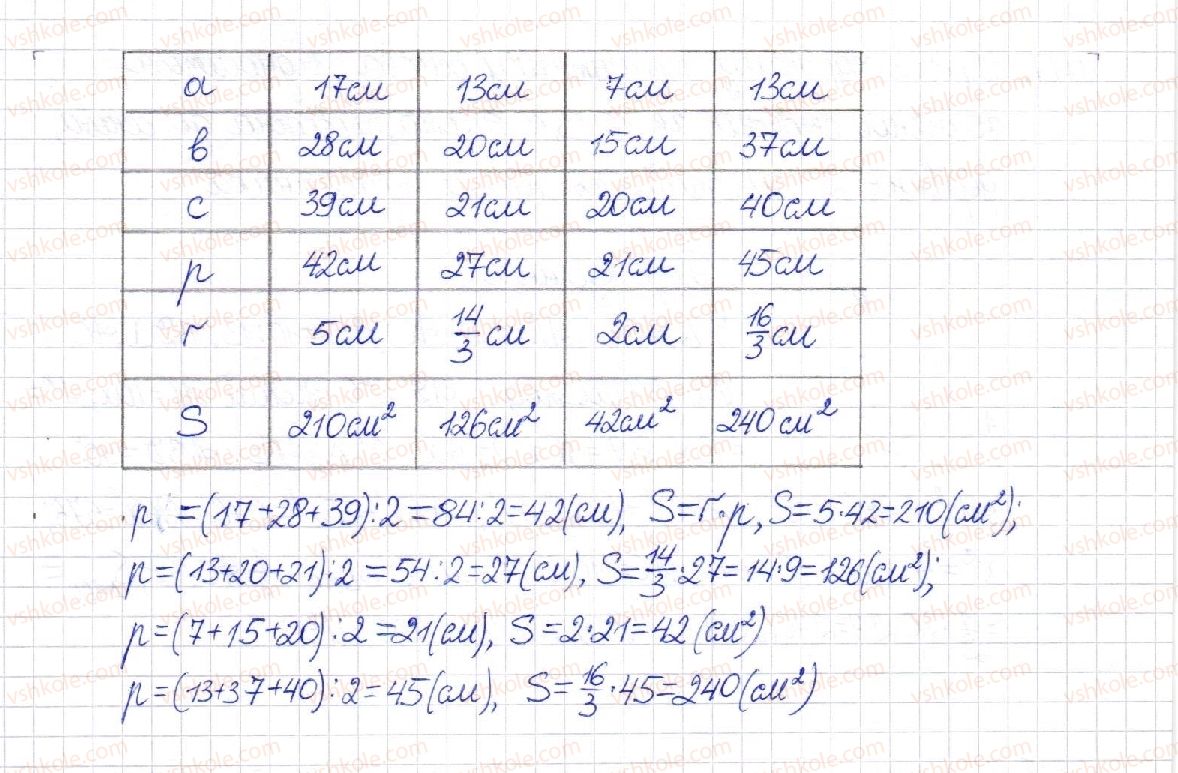 a 17см 13см 7см 13см
в 28см 20см 15см 37см
с 39см 21см 20см 40см
p 42см 27см 21см 45см
r 5см 14/3 см 2см 16/3 см
S 210см² 126см² 42см² 240см²
p = (17+28+39):2=84:2=42(см), S=r·p, S=5·42=210(см²);
p=(13+20+21):2=54:2=27(см), S=14/3·27=14·9=126(см²);
p=(7+15+20):2=21(см), S=2·21=42(см²)
p=(13+37+40):2=45(см), S=16/3·45=240(см²)
vshkole.com